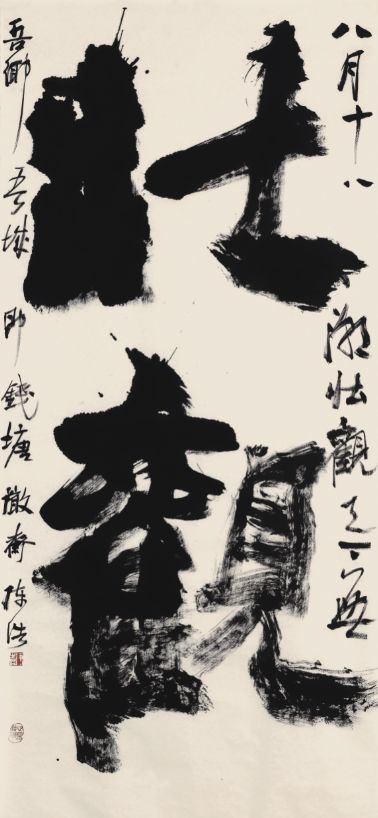 八月十八潮壯觀天下無
壯觀
吾鄉吾城即錢塘 齋陈浩